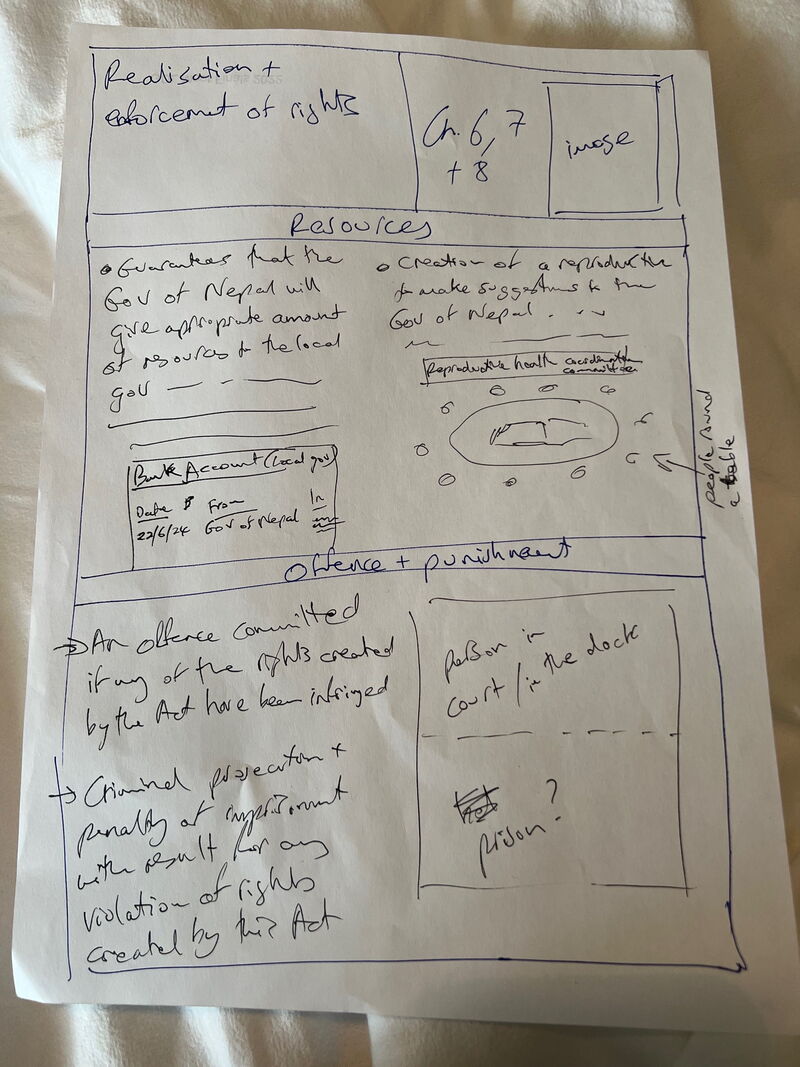 Realisation +
enforcement of rights
Ch. 6, 7
+ 8
image
Resources
Guarantees that the
Gov of Nepal will
give appropriate amount
of resources to the local
gov
Creation of a reproductive
to make suggestions to the
Gov of Nepal . . .
Reproductive health coordination
committee
people round
a table
Bank Account (local gov)
Date From In
22/6/24 Gov of Nepal
Offence + punishment
→ An offence committed
if any of the rights created
by the Act have been infringed
→ Criminal prosecution +
penalty of imprisonment
with result for any
violation of rights
created by this Act
person in
court / in the dock
prison?